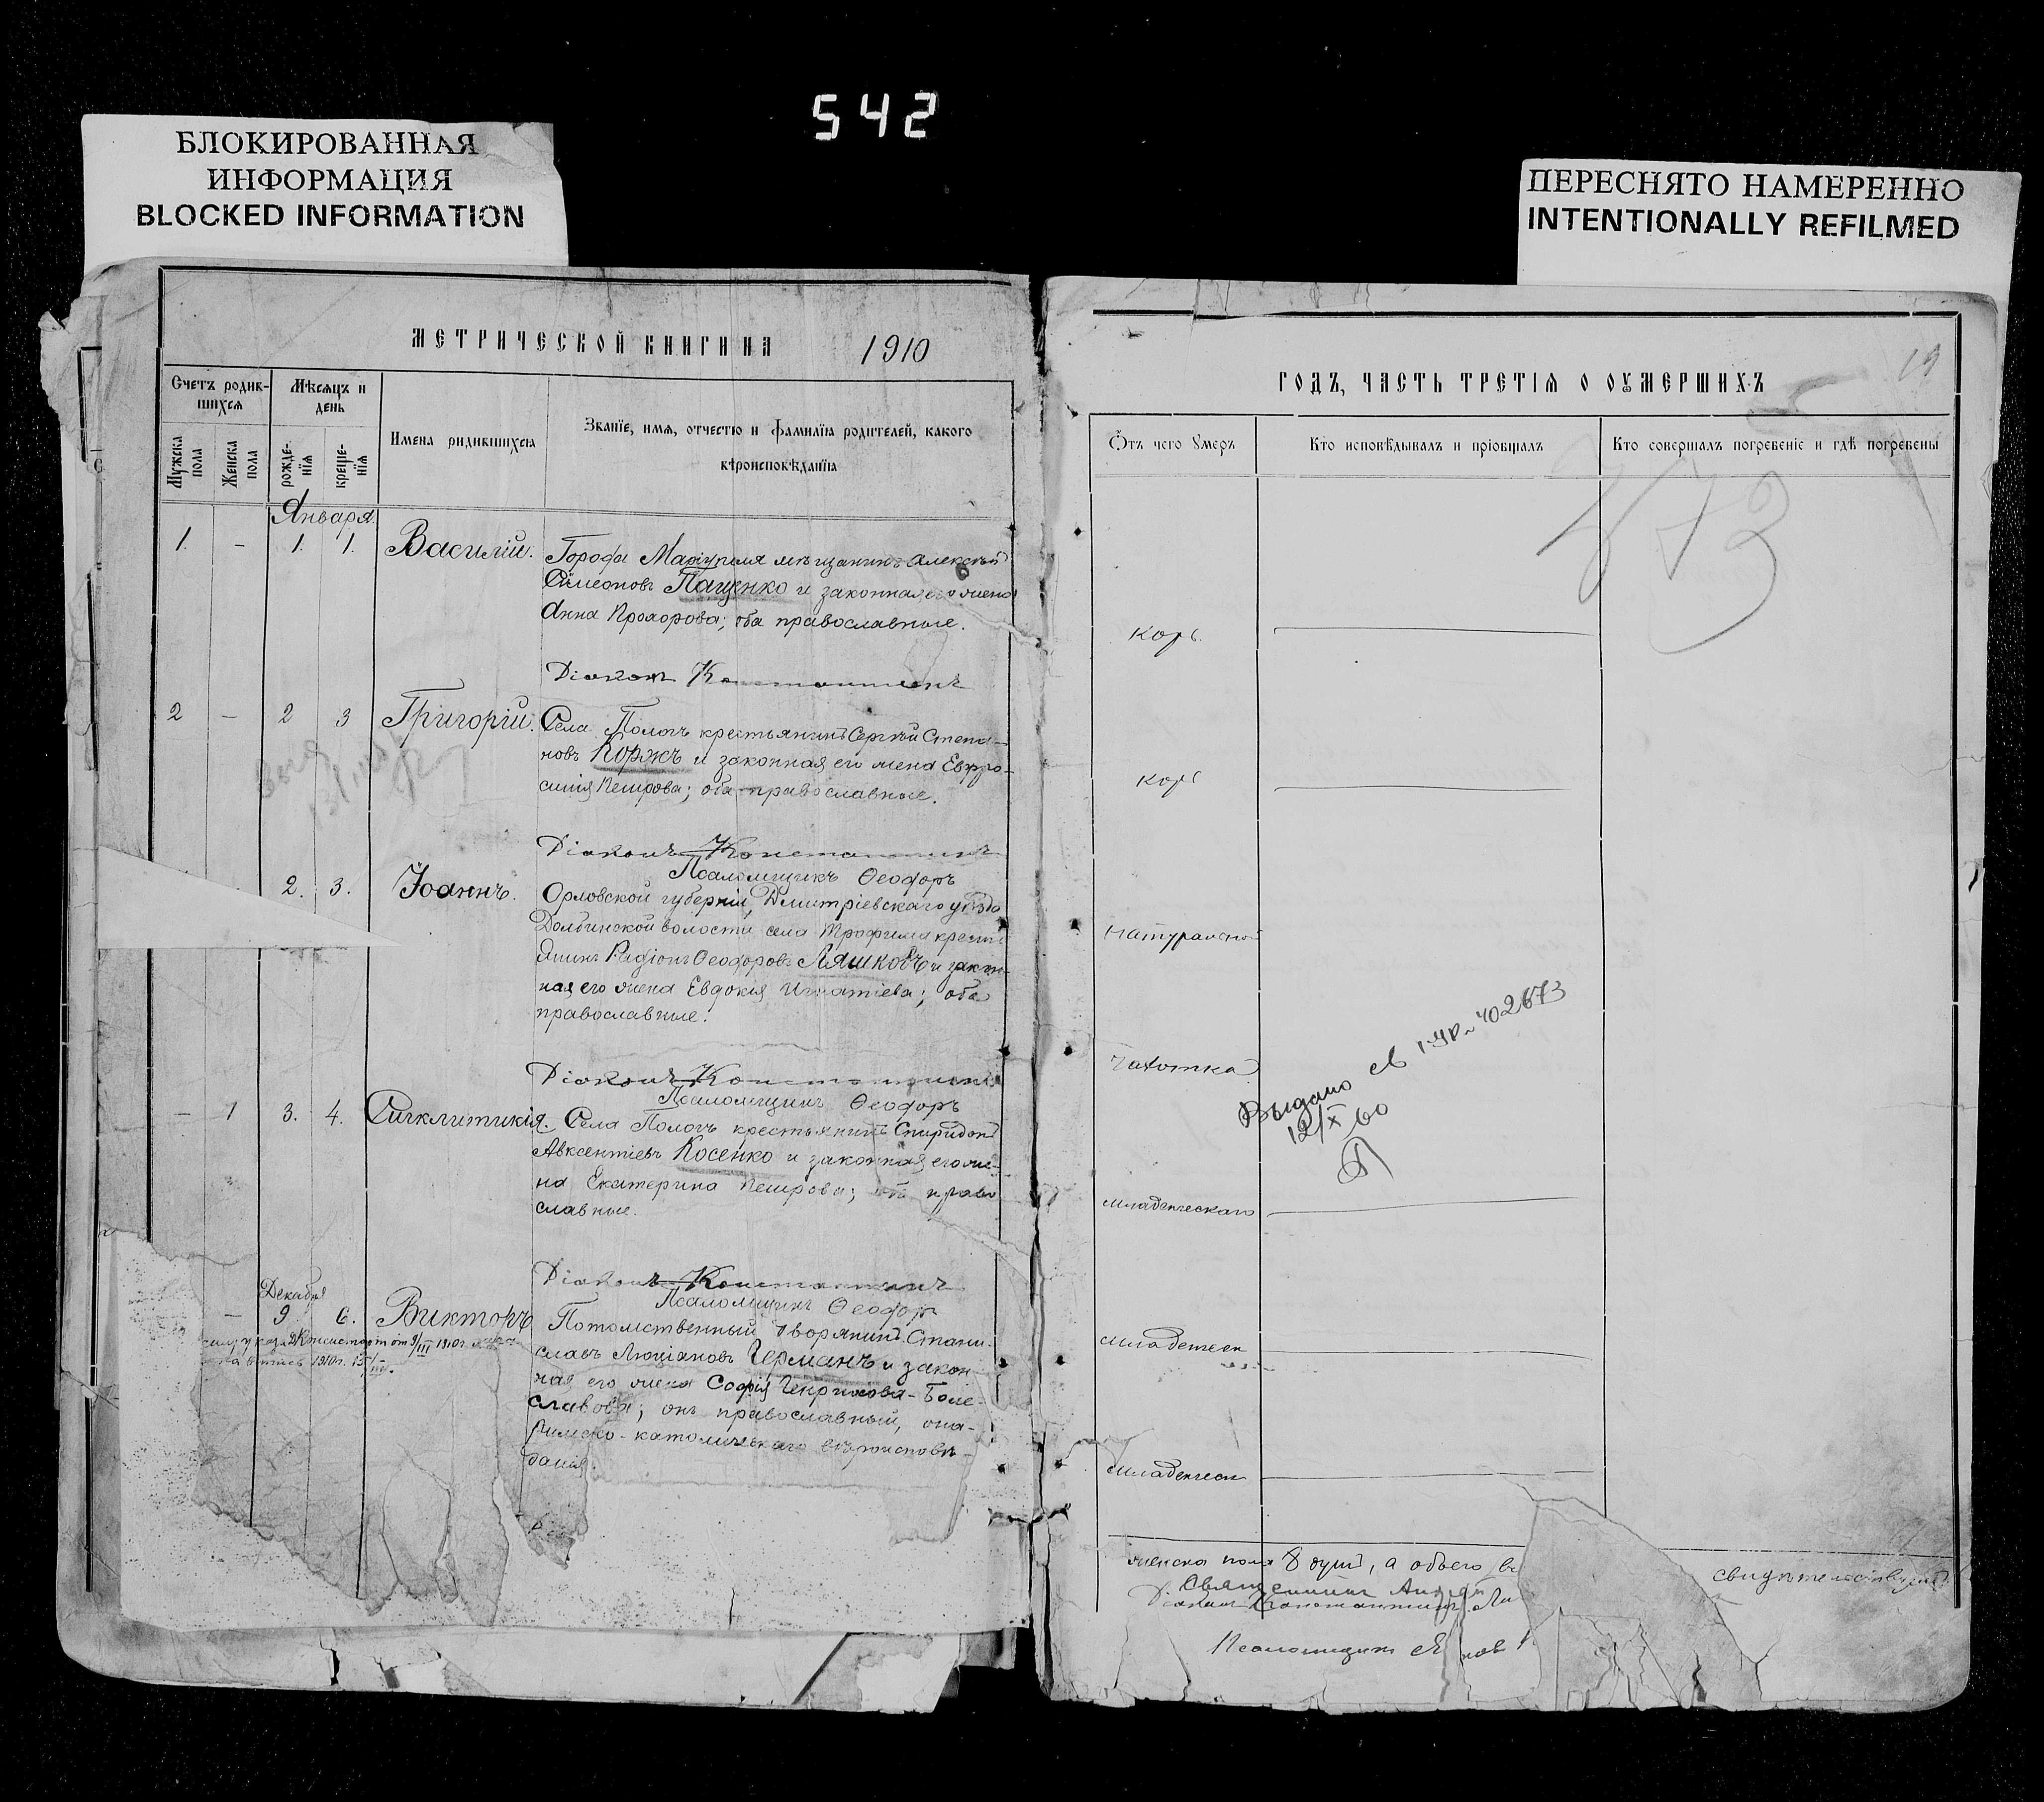 542
БЛОКИРОВАННАЯ
ИНФОРМАЦИЯ
BLOCKED INFORMATION
ПЕРЕСНЯТО НАМЕРЕННО
INTENTIONALLY REFILMED
МЕТРИЧЕСКОЙ КНИГИ НА 1910
Счетъ родив-
шихся
Мѣсяцъ и
день
Мужска
пола
Женска
пола
рожде-
нія
креще-
нія
Имена родившихся
Званіе, имя, отчество и фамилія родителей, какого
вѣроисповѣданія
Января
1. - 1. 1. Василій.
Города Маріуполя мѣщанинъ Алексѣй
Симеоновъ Пащенко и законная его жена
Анна Прохорова; оба православные.
Діаконъ Константинъ
2 - 2 3 Григорій.
Села Пологъ крестьянинъ Сергѣй Степа-
новъ Коржъ и законная его жена Евфро-
синія Петрова; оба православные.
Діаконъ Константинъ
Псаломщикъ Ѳеодоръ
2. 3. Іоаннъ.
Орловской губерніи, Дмитріевскаго уѣзда
Долбинской волости села Трофима крестья
янинъ Ѳеодоровъ Ляшковъ и закон-
ная его жена Евдокія Игнатіева; оба
православные.
Діаконъ Константинъ
Псаломщикъ Ѳеодоръ
- 1 3. 4. Сигклитикія.
Села Пологъ крестьянинъ Спиридонъ
Авксентіевъ Косенко и законная его же-
на Екатерина Петрова; оба право
славные.
Діаконъ Константинъ
Псаломщикъ Ѳеодоръ
Декабря
- 9 6. Викторъ
Потомственный дворянинъ Стани-
славъ Люціановъ Германъ и закон-
ная его жена Софія Генрихова-Боле-
славова; онъ православный, она-
Римско-католическаго вѣроисповѣ-
данія.
19
ГОДЪ, ЧАСТЬ ТРЕТІЯ О ОУМЕРШИХЪ
Отъ чего умеръ
Кто исповѣдывалъ и пріобщалъ
Кто совершалъ погребеніе и гдѣ погребены
корь
корь
натуральной
чахотка
Выдано св 402673
12/X 60
младенческаго
младенческ
младенческ
женска пола 8 душъ, а обоего
свидѣтельствуемъ
Священникъ
Діаконъ Константинъ
Псаломщикъ